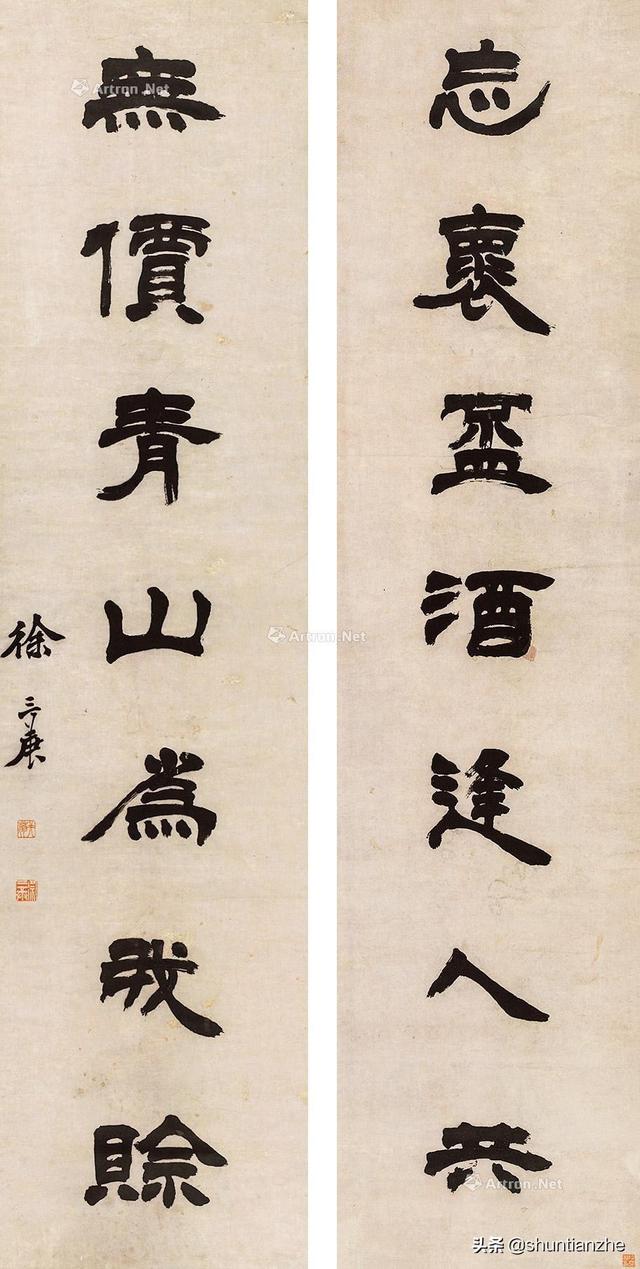 忘褱盃酒逢人共
無價青山為我賒
徐三庚
Artron.Net
Artron.Net
Artron.Net
头条 @shuntianzhe